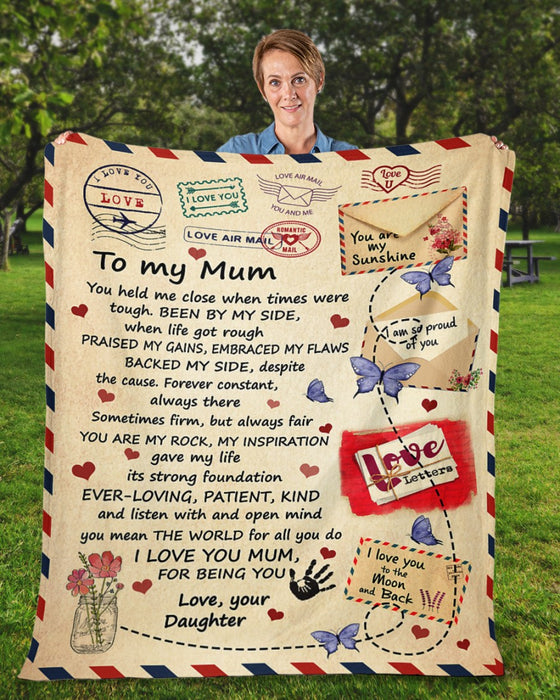 I LOVE YOU
LOVE
I LOVE YOU
LOVE AIR MAIL
YOU AND ME
Love
U
LOVE AIR MAIL
ROMANTIC
MAIL
You are
my
Sunshine
To my Mum
You held me close when times were
tough. BEEN BY MY SIDE,
when life got rough
PRAISED MY GAINS, EMBRACED MY FLAWS
BACKED MY SIDE, despite
the cause. Forever constant,
always there
Sometimes firm, but always fair
YOU ARE MY ROCK, MY INSPIRATION
gave my life
its strong foundation
EVER-LOVING, PATIENT, KIND
and listen with and open mind
you mean THE WORLD for all you do
I LOVE YOU MUM,
FOR BEING YOU
Love, your
Daughter
I am so proud
of you
Love
Letters
I love you
to the
Moon
and Back